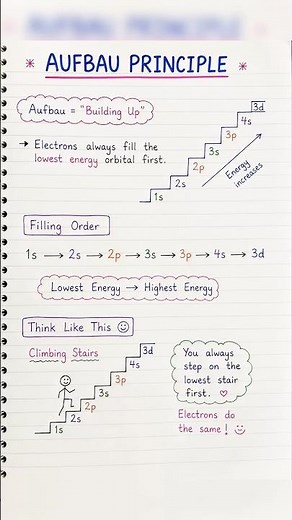 * AUFBAU PRINCIPLE *
Aufbau = "Building Up"
→ Electrons always fill the
lowest energy orbital first.
3d
4s
3p
3s
2p
2s
1s
Energy
increases
Filling Order
1s → 2s → 2p → 3s → 3p → 4s → 3d
Lowest Energy → Highest Energy
Think Like This ☺
Climbing Stairs
3d
4s
3p
3s
2p
2s
1s
You always
step on the
lowest stair
first. ♡
Electrons do
the same! ☺